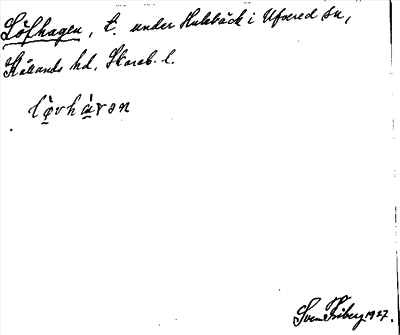 Löfhagen, t. under Hulebäck i Ufvered sn,
Kållands hd, Skarab. l.
lø̀vhàvən
Sven Friberg 1927.